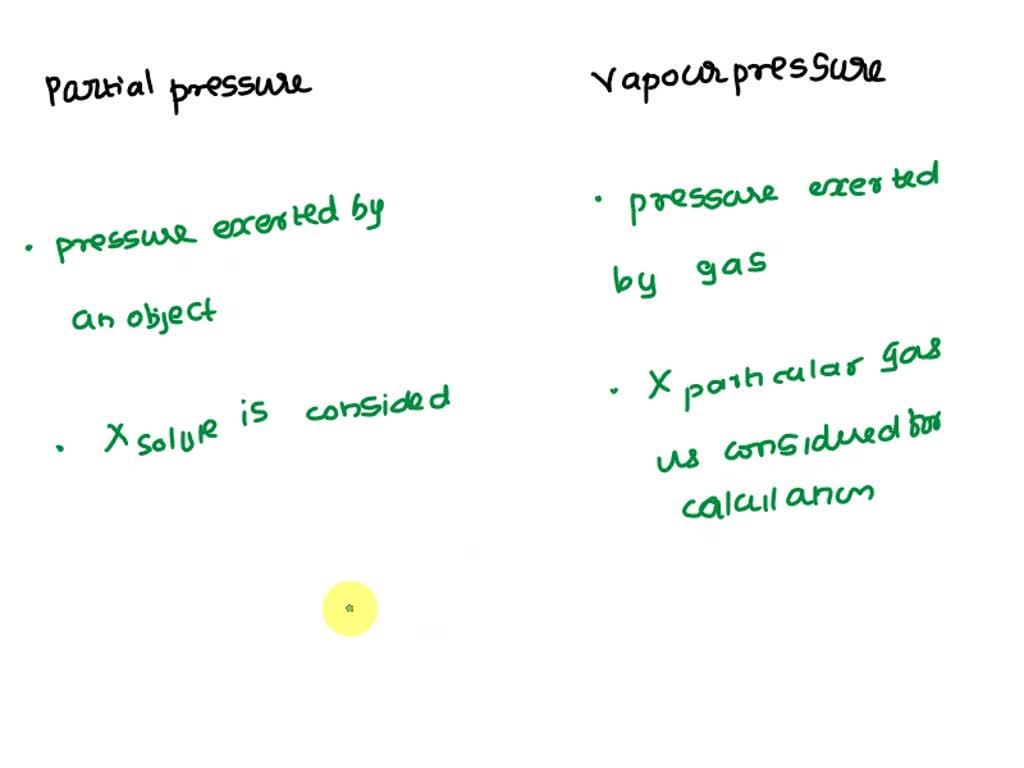 Partial pressure
Vapour pressure
• pressure exerted by
an object
• X solute is consided
• pressure exerted
by gas
• X particular gas
us considered for
calculation